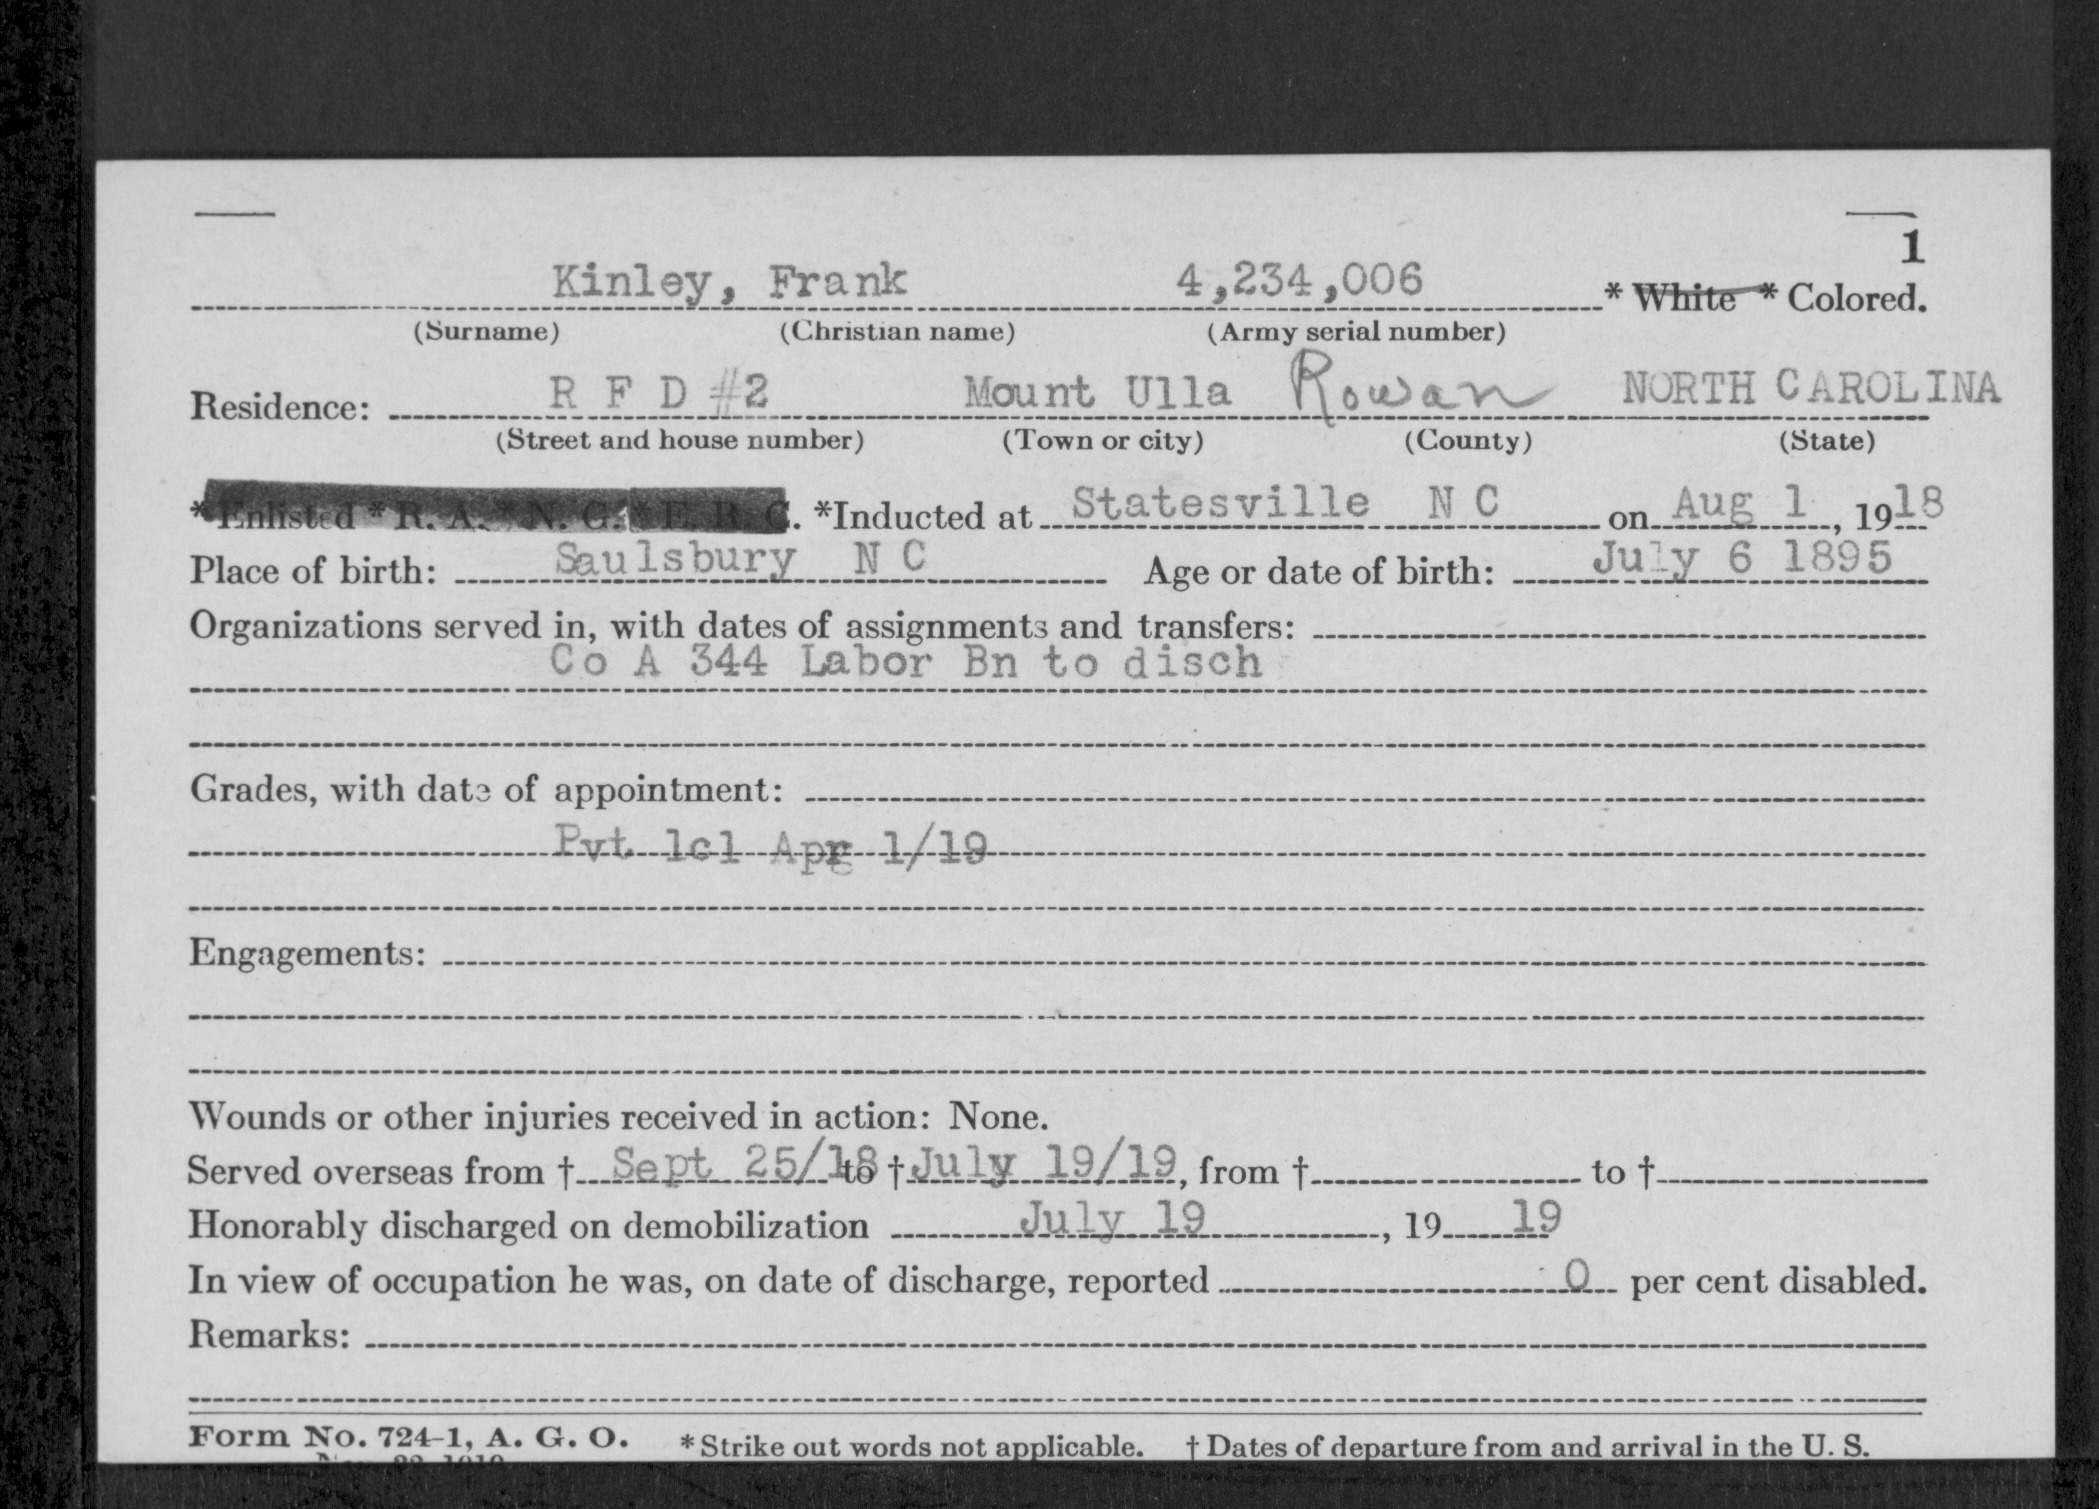 1
Kinley, Frank 4,234,006 * White * Colored.
(Surname) (Christian name) (Army serial number)
Residence: R F D #2 Mount Ulla Rowan NORTH CAROLINA
(Street and house number) (Town or city) (County) (State)
* Enlisted * R. A. * N. G. * E. R. C. *Inducted at Statesville N C on Aug 1, 1918
Place of birth: Saulsbury N C Age or date of birth: July 6 1895
Organizations served in, with dates of assignments and transfers:
Co A 344 Labor Bn to disch
Grades, with date of appointment:
Pvt 1cl Apr 1/19
Engagements:
Wounds or other injuries received in action: None.
Served overseas from † Sept 25/18 to † July 19/19, from † to †
Honorably discharged on demobilization July 19, 19 19
In view of occupation he was, on date of discharge, reported 0 per cent disabled.
Remarks:
Form No. 724-1, A. G. O. *Strike out words not applicable. † Dates of departure from and arrival in the U. S.